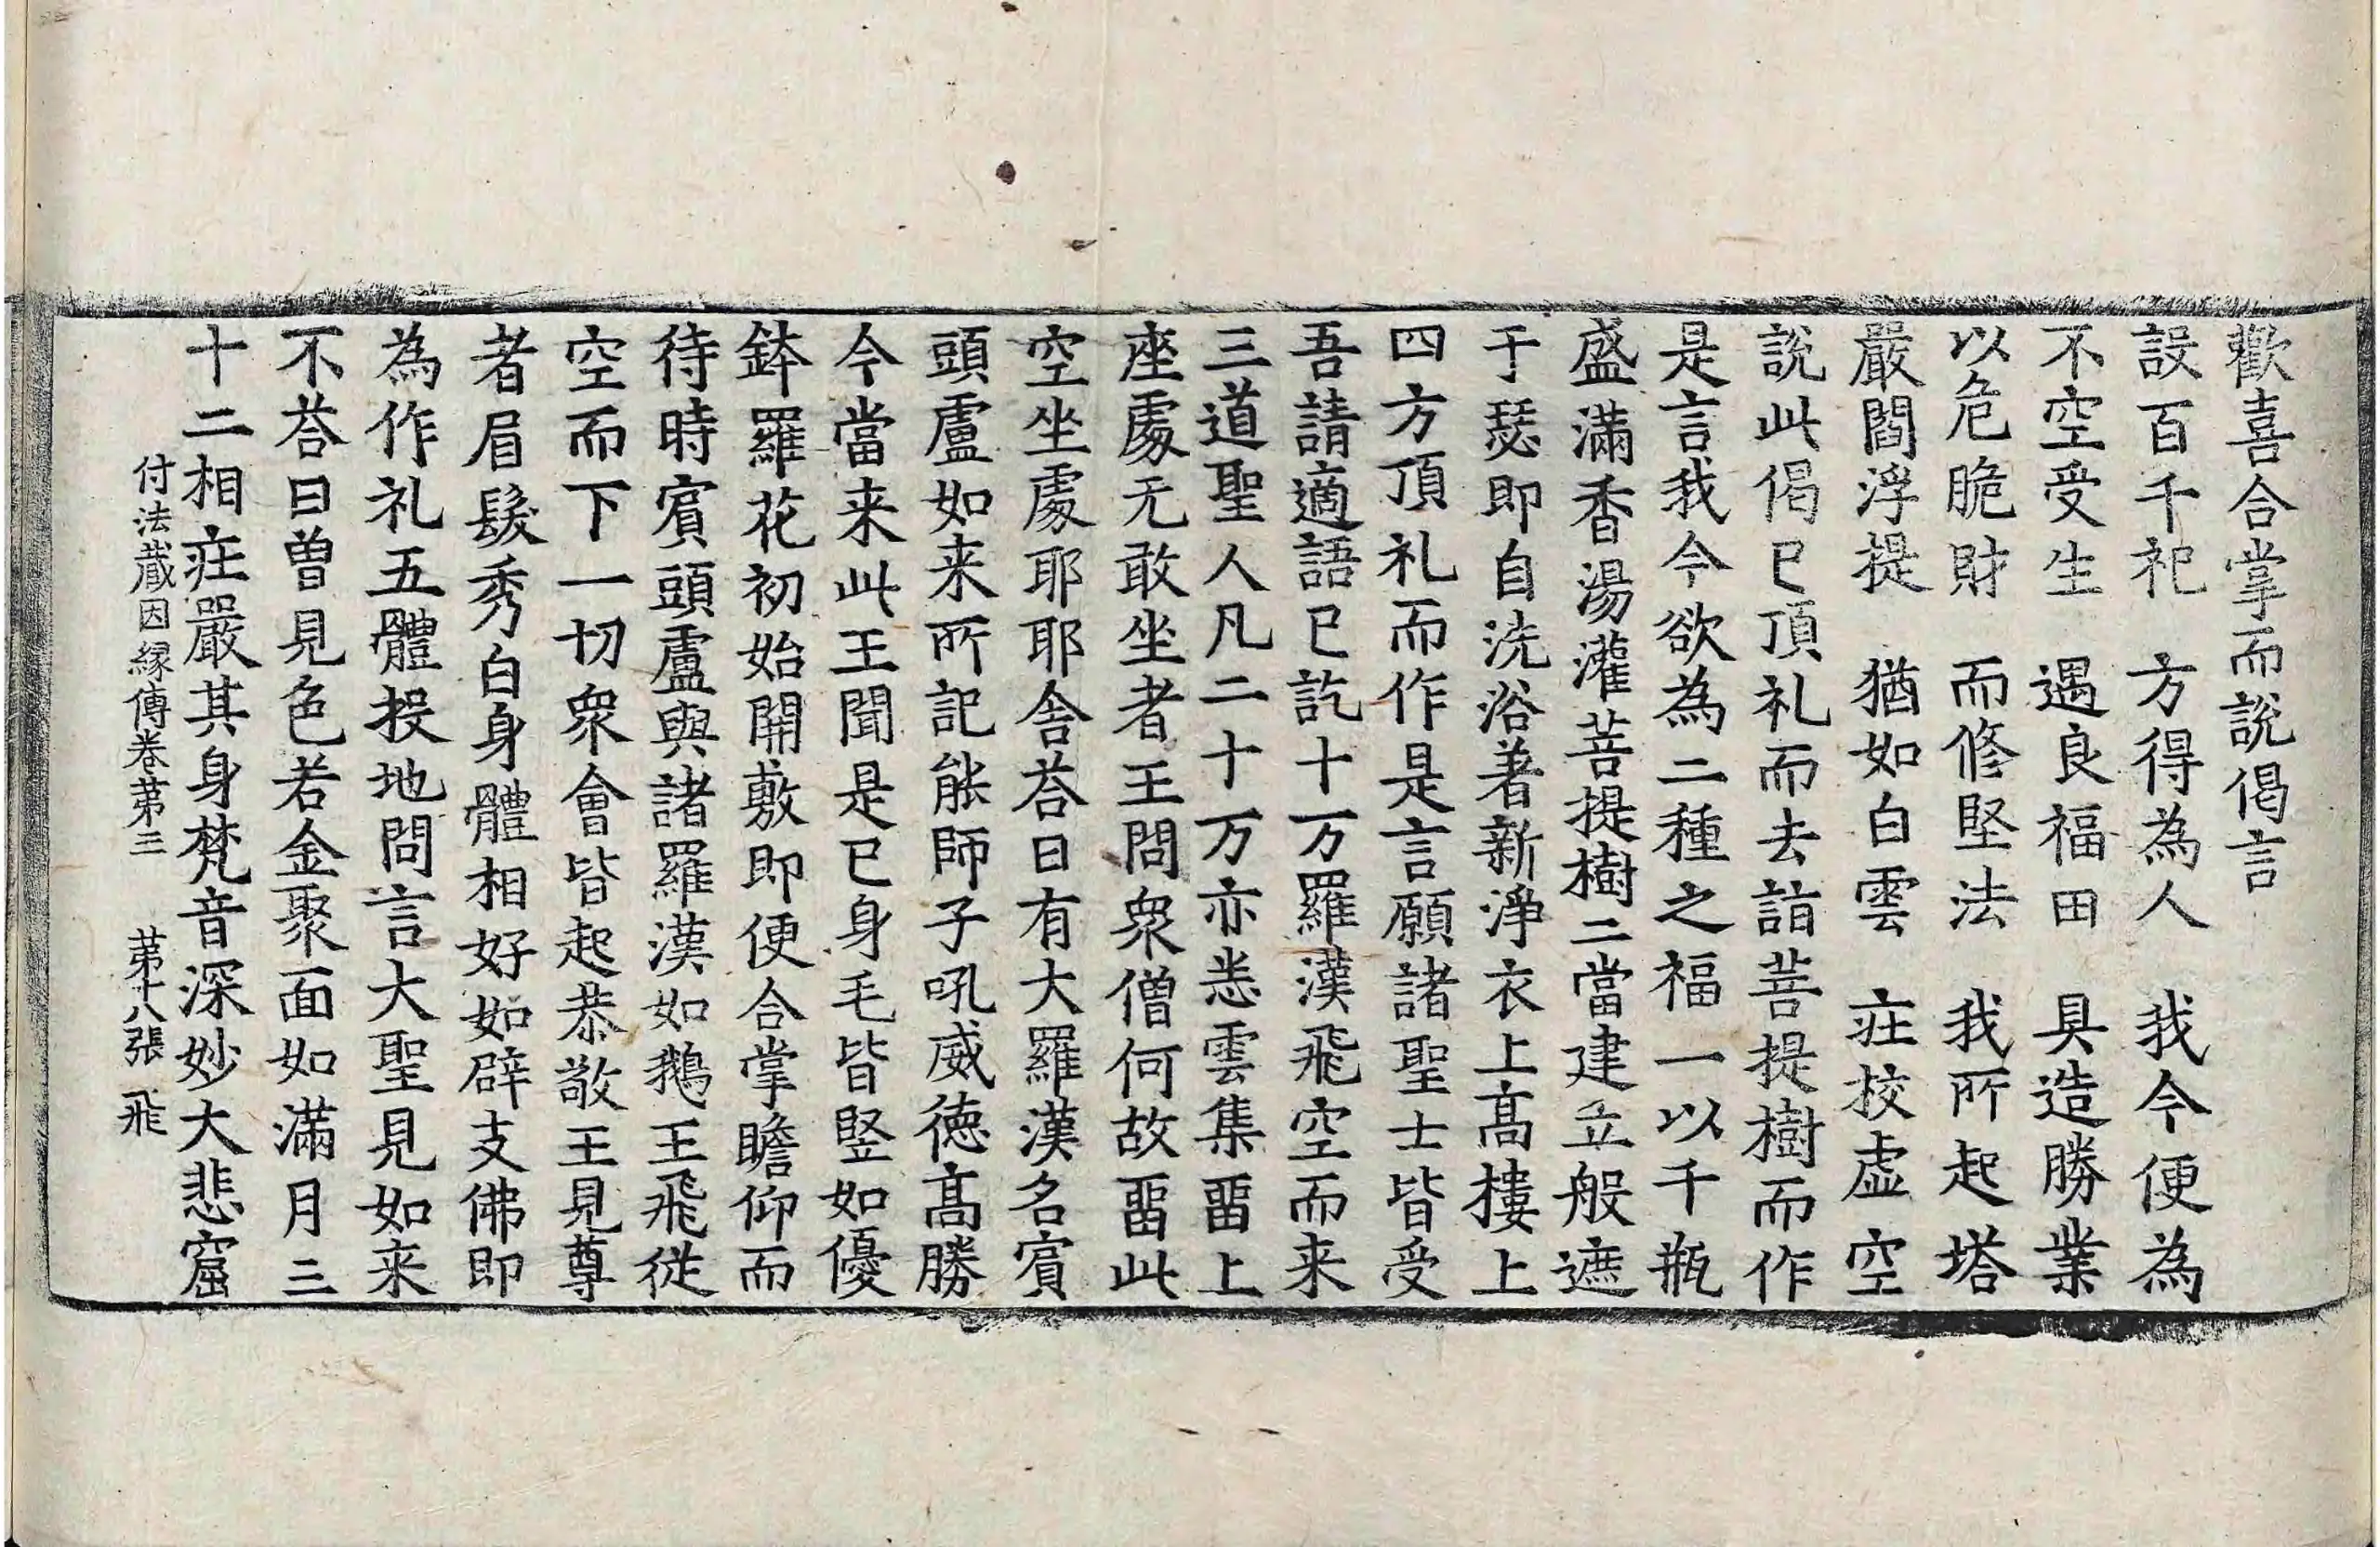 歡喜合掌而說偈言
設百千祀　方得為人　我今便為
不空受生　遇良福田　具造勝業
以危脆財　而修堅法　我所起塔
嚴閻浮提　猶如白雲　庄校虛空
說此偈已頂礼而去詣菩提樹而作
是言我今欲為二種之福一以千瓶
盛滿香湯灌菩提樹二當建立般遮
于瑟即自洗浴著新淨衣上髙樓上
四方頂礼而作是言願諸聖士皆受
吾請適語已訖十万羅漢飛空而来
三道聖人凡二十万亦悉雲集畱上
座處无敢坐者王問衆僧何故畱此
空坐處耶耶舍荅曰有大羅漢名賓
頭盧如来所記能師子吼威德髙勝
今當来此王聞是已身毛皆竪如優
鉢羅花初始開敷即便合掌瞻仰而
待時賓頭盧與諸羅漢如鵝王飛從
空而下一切衆會皆起恭敬王見尊
者眉髮秀白身體相好如辟支佛即
為作礼五體投地問言大聖見如来
不荅曰曽見色若金聚面如滿月三
十二相庄嚴其身梵音深妙大悲窟
付法蔵因縁傳卷苐三　苐十八張　飛